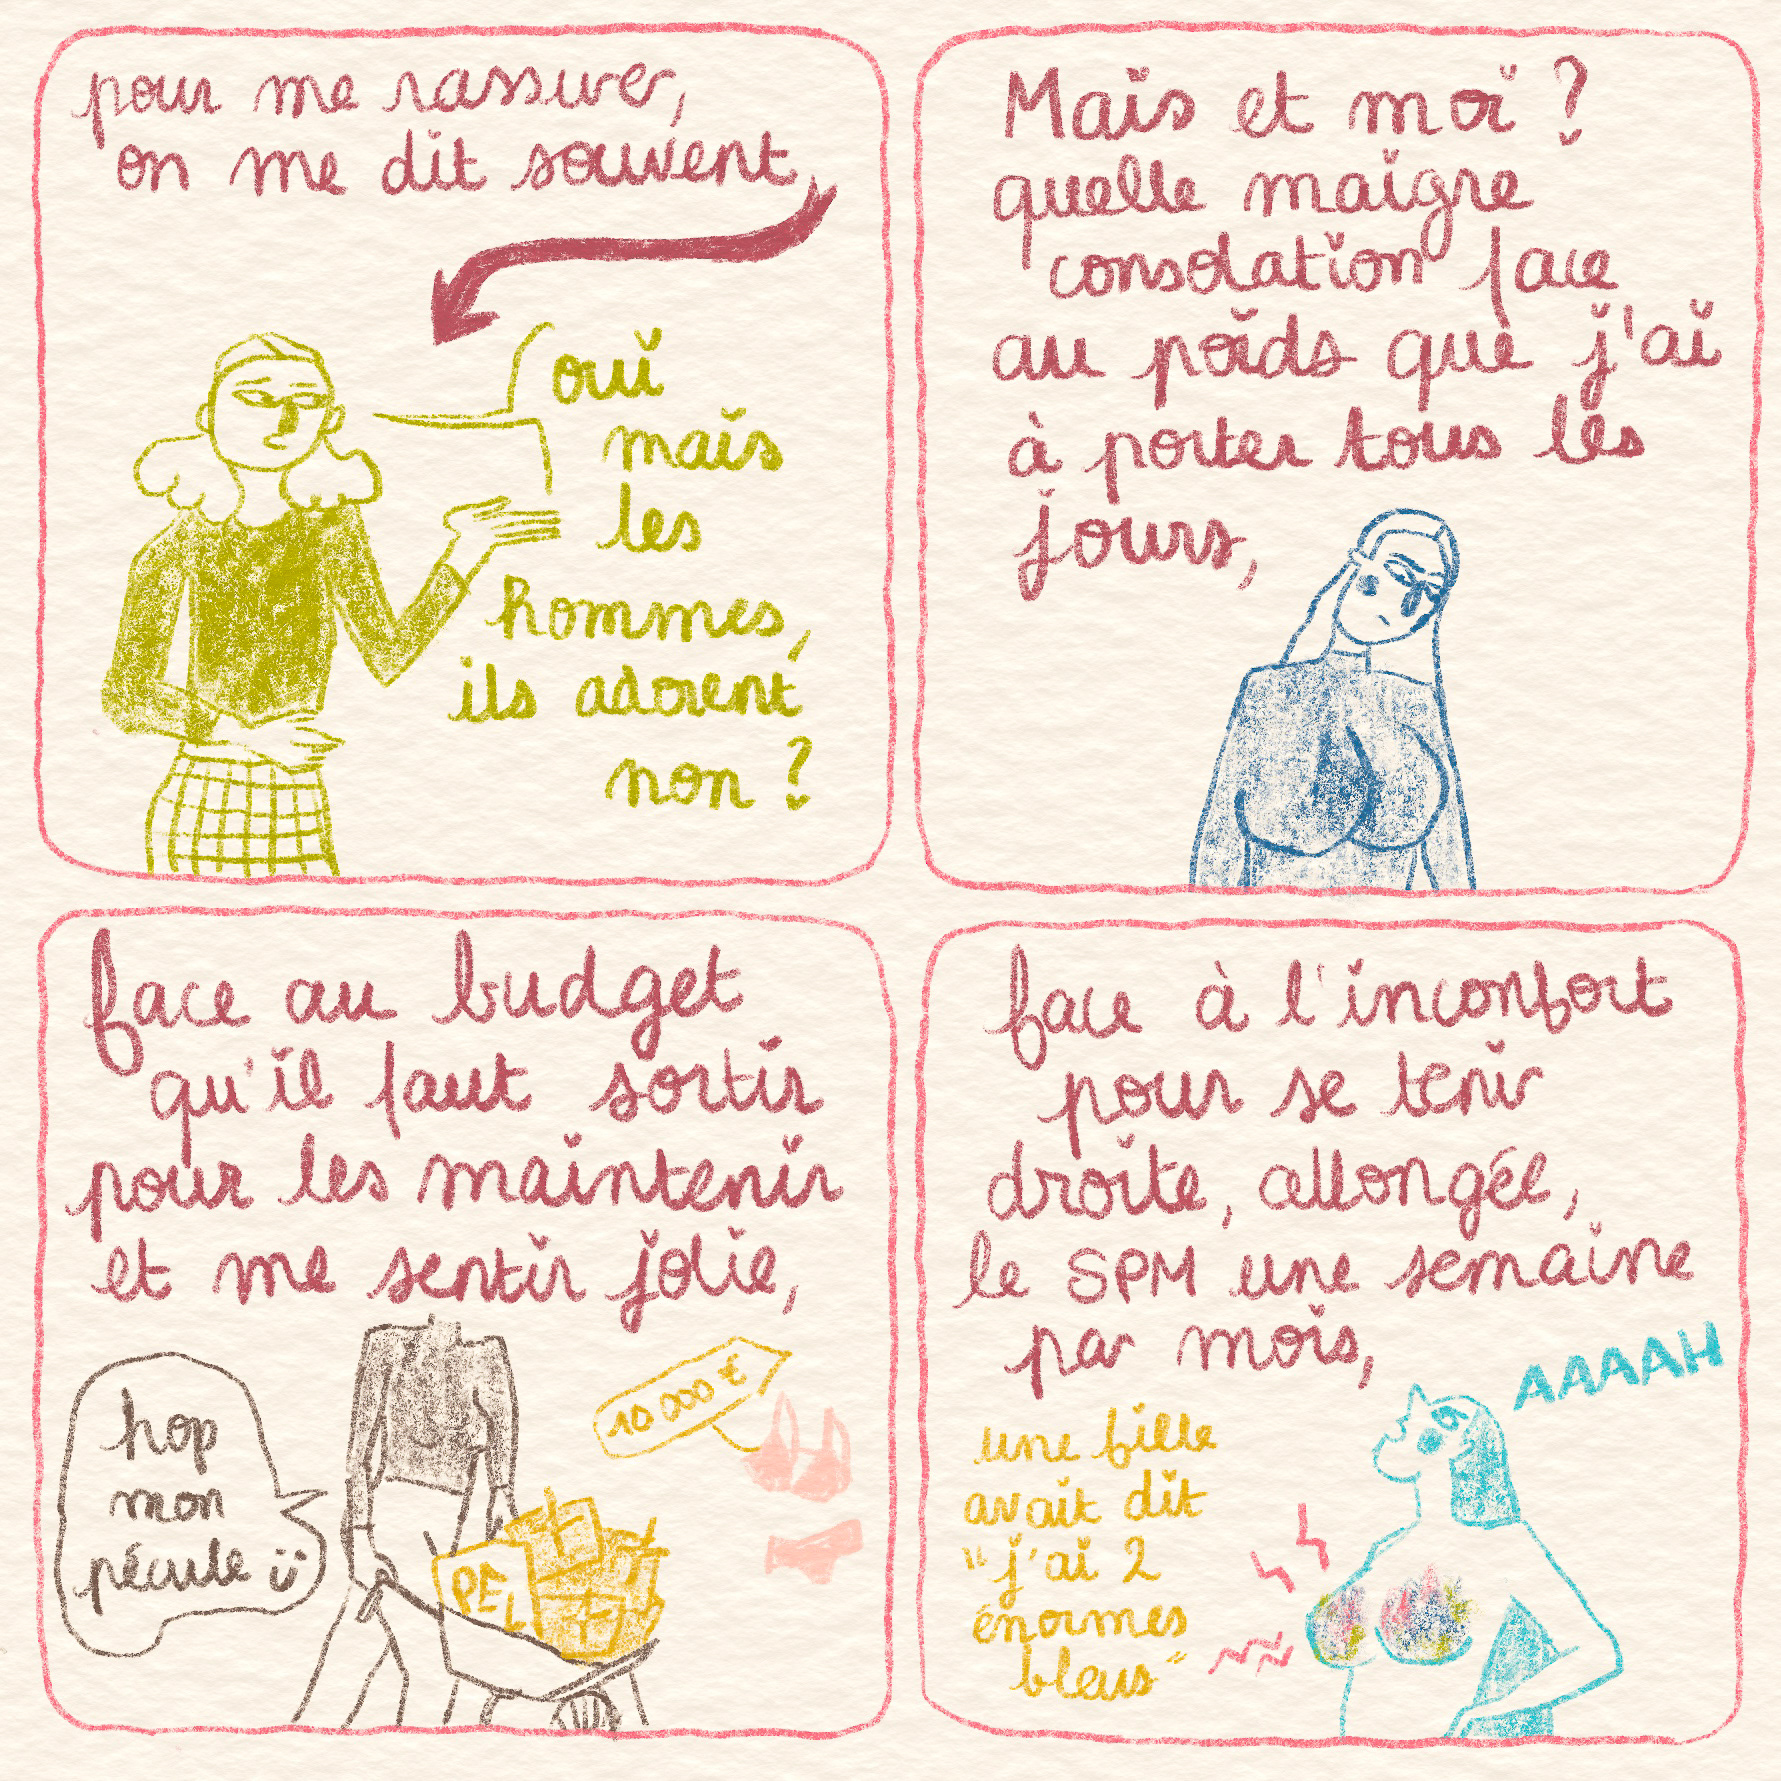 pour me rassurer,
on me dit souvent,
oui
mais
les
hommes,
ils adorent
non ?
Mais et moi ?
quelle maigre
consolation face
au poids que j'ai
à porter tous les
jours,
face au budget
qu'il faut sortir
pour les maintenir
et me sentir jolie,
hop
mon
pécule ü
10 000 €
PEL
face à l'inconfort
pour se tenir
droite, allongée,
le SPM une semaine
par mois,
AAAAH
une fille
avait dit
"j'ai 2
énormes
bleus"